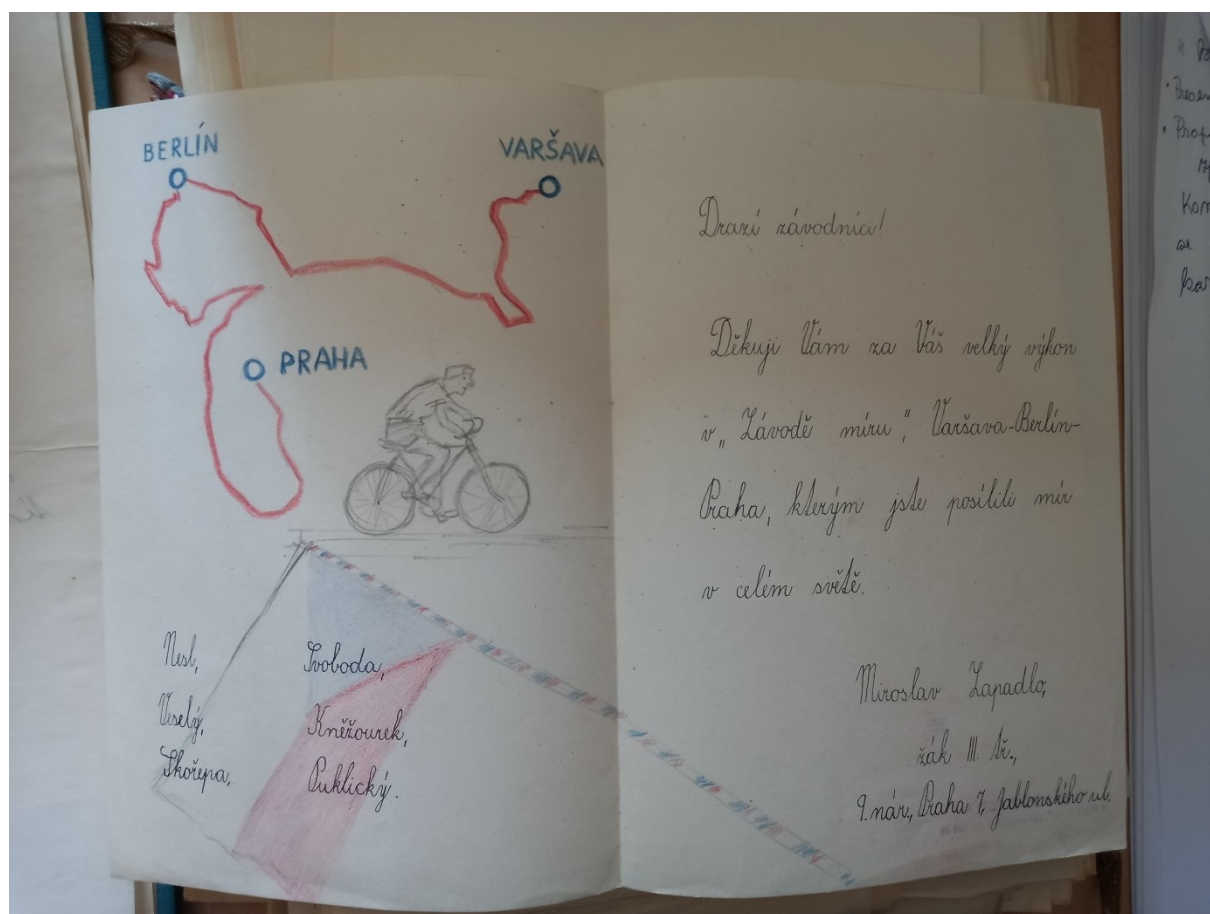 BERLÍN
VARŠAVA
PRAHA
Nesl,
Veselý,
Skořepa,
Svoboda,
Kněžourek,
Puklický.
Drazí závodníci!
Děkuji Vám za Váš velký výkon
v „Závodě míru", Varšava-Berlín-
Praha, kterým jste posílili mír
v celém světě.
Miroslav Zapadlo,
žák III. tř.,
9. nár., Praha 7, Jablonského ul.
Kom